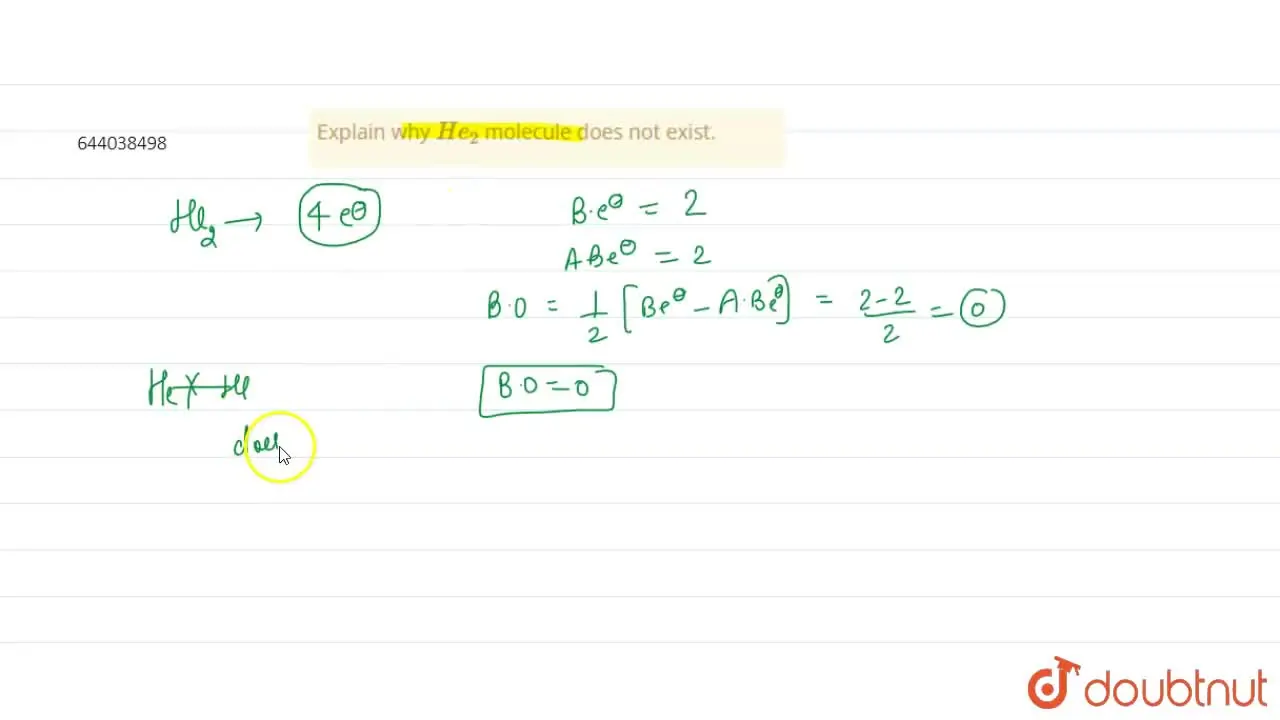 644038498
Explain why He₂ molecule does not exist.
He₂ → 4 e⊖
B·e⊖ = 2
ABe⊖ = 2
B·O = 1/2 [Be⊖ – A·Be⊖] = 2-2/2 = 0
He ✗ He
B·O = 0
does
doubtnut